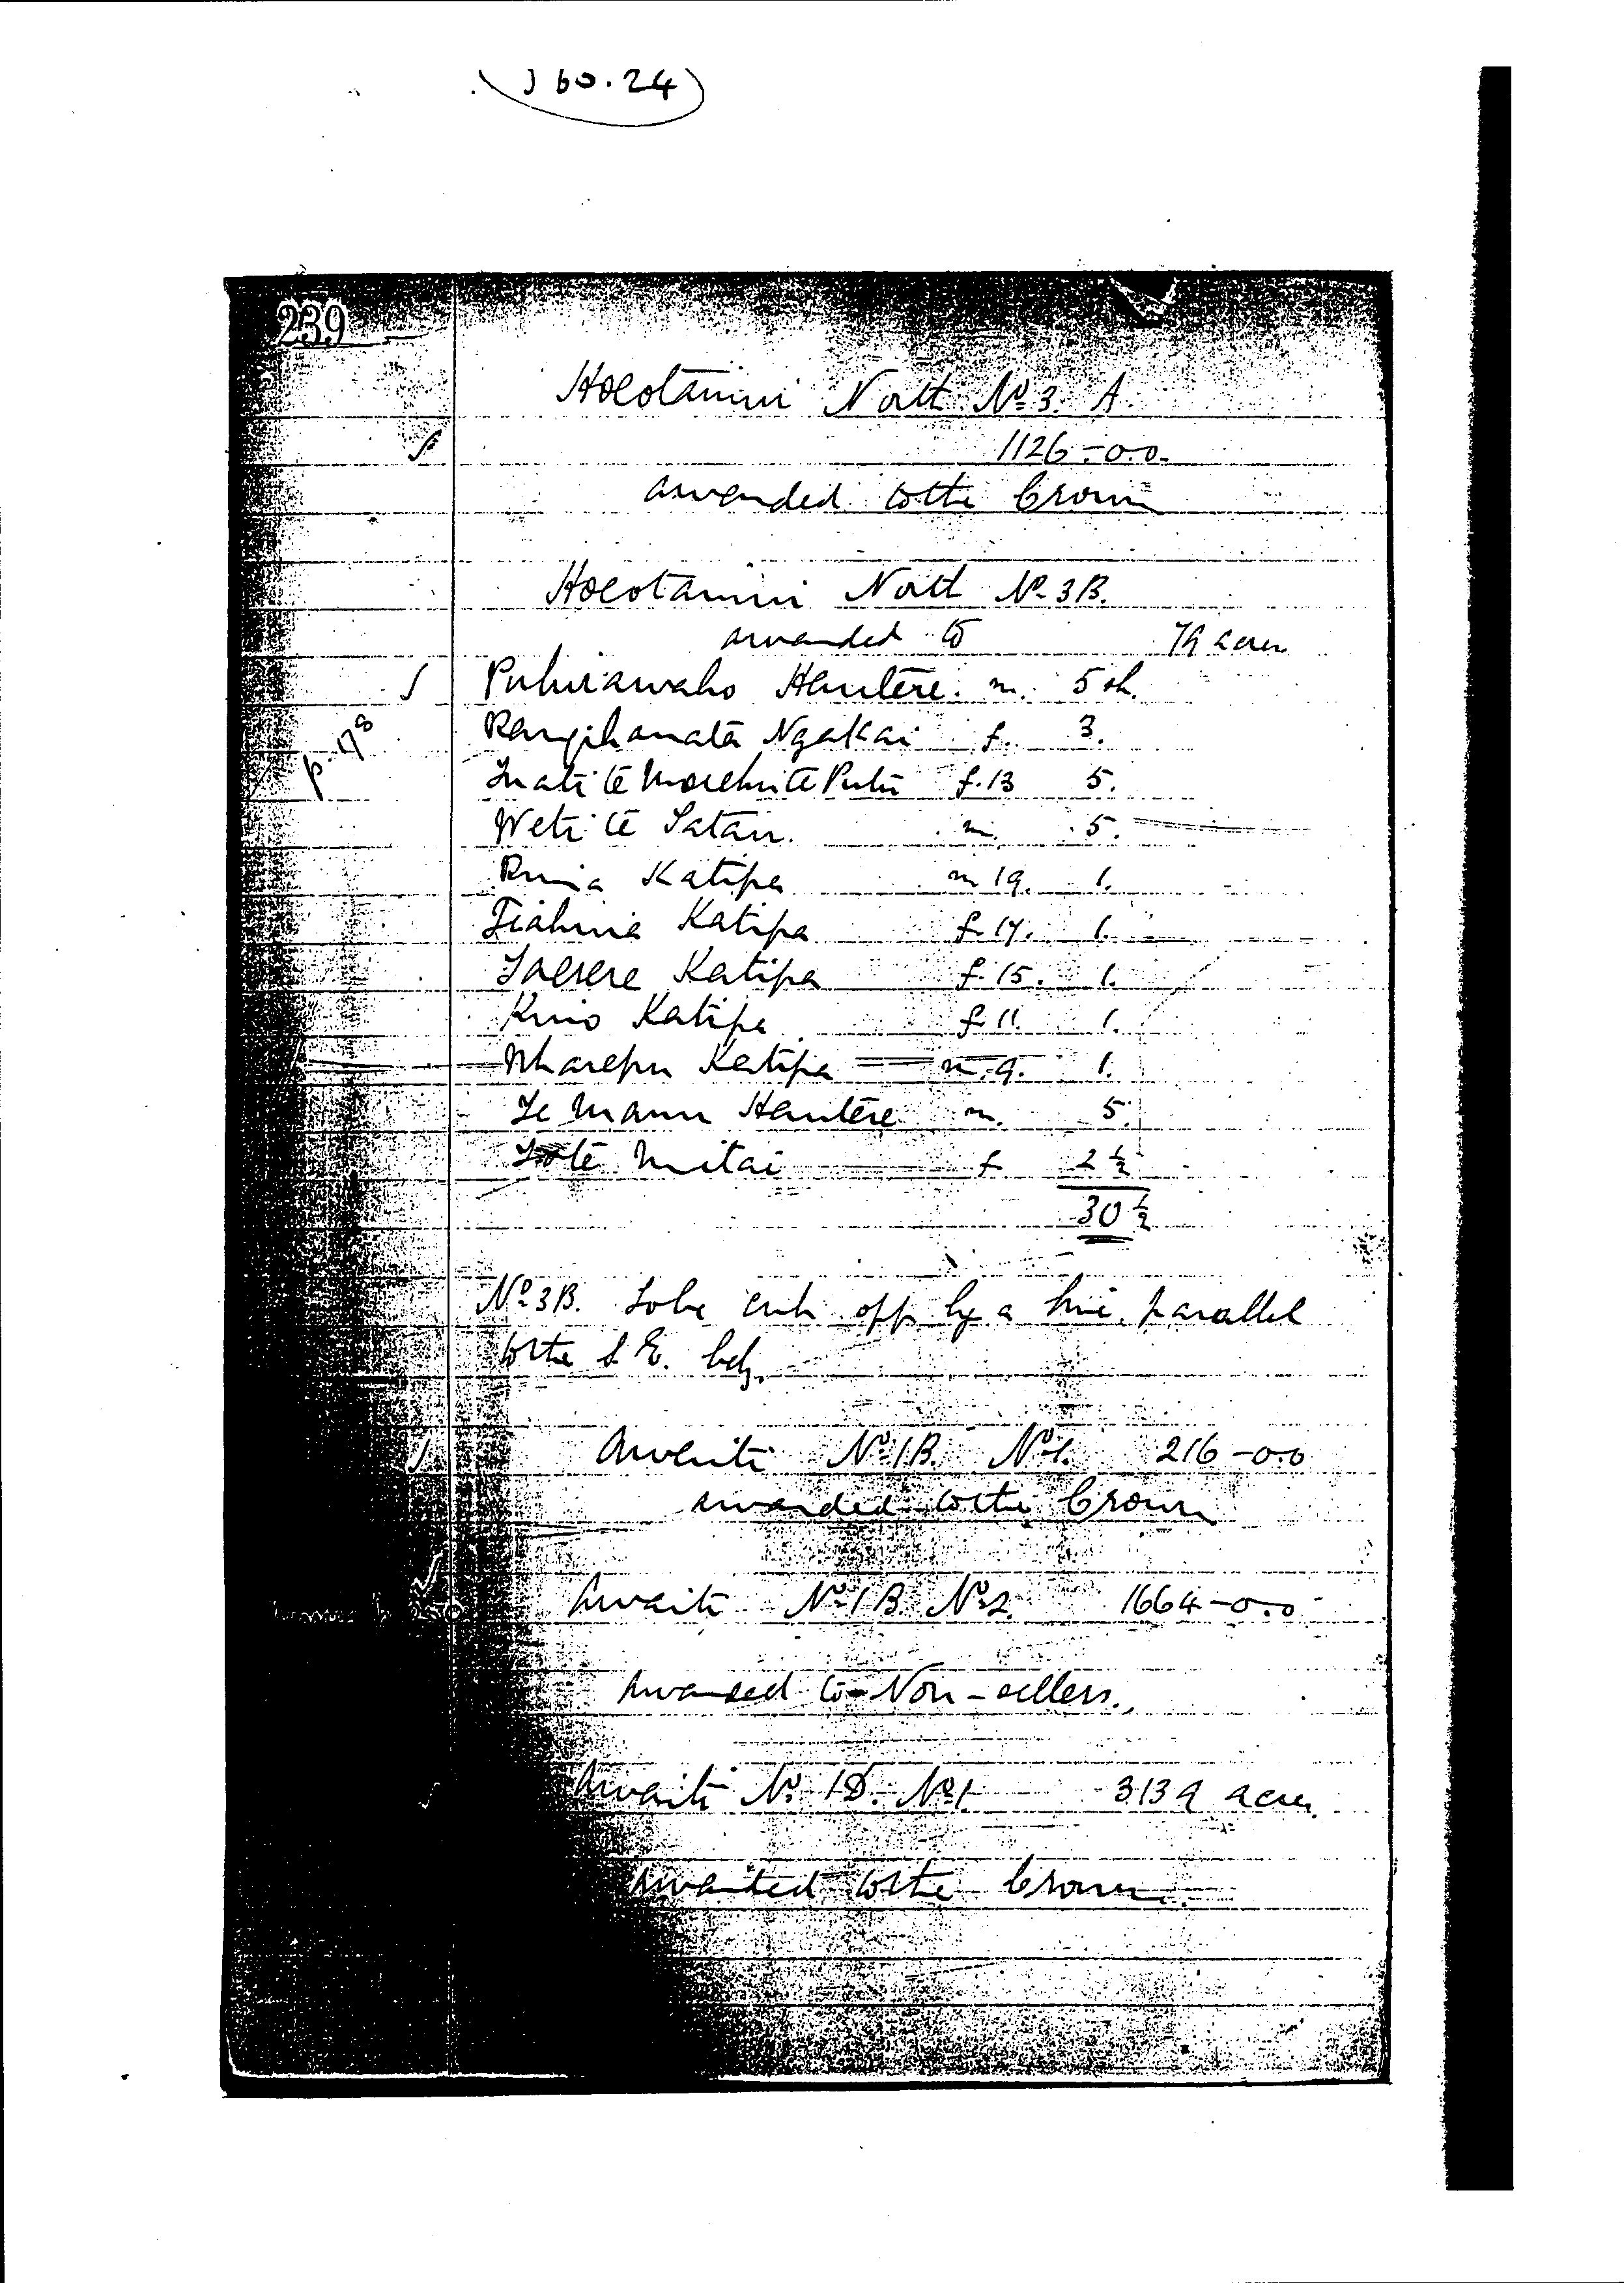 J 60.24
239
Hoeotainui North No 3. A.
1126-0.0.
awarded to the Crown
Hoeotainui North No 3B.
awarded to 79 acres
Puhirawaho Hautere. m. 5 sh.
p. 178
Rangihanata Ngakai f. 3.
te Morehu te Puhi f. 13 5.
Weti te m. 5.
Katipa m 19. 1.
Tiahuia Katipa f. 17. 1.
Taerere Katipa f. 15. 1.
Kino Katipa f. 11. 1.
Wharepu Katipa m. 9. 1.
Te Manu Hautere m. 5.
Mitai f 2½
30½
No 3B. To be cut off by a line parallel
to the S. E. bdy.
Awaiti No 1B. No 1. 216-0.0
awarded to the Crown
Awaiti No 1B No 2. 1664-0.0
Awarded to Non-sellers.
Awaiti No 1D. No 1. 3139 acres.
Awarded to the Crown.